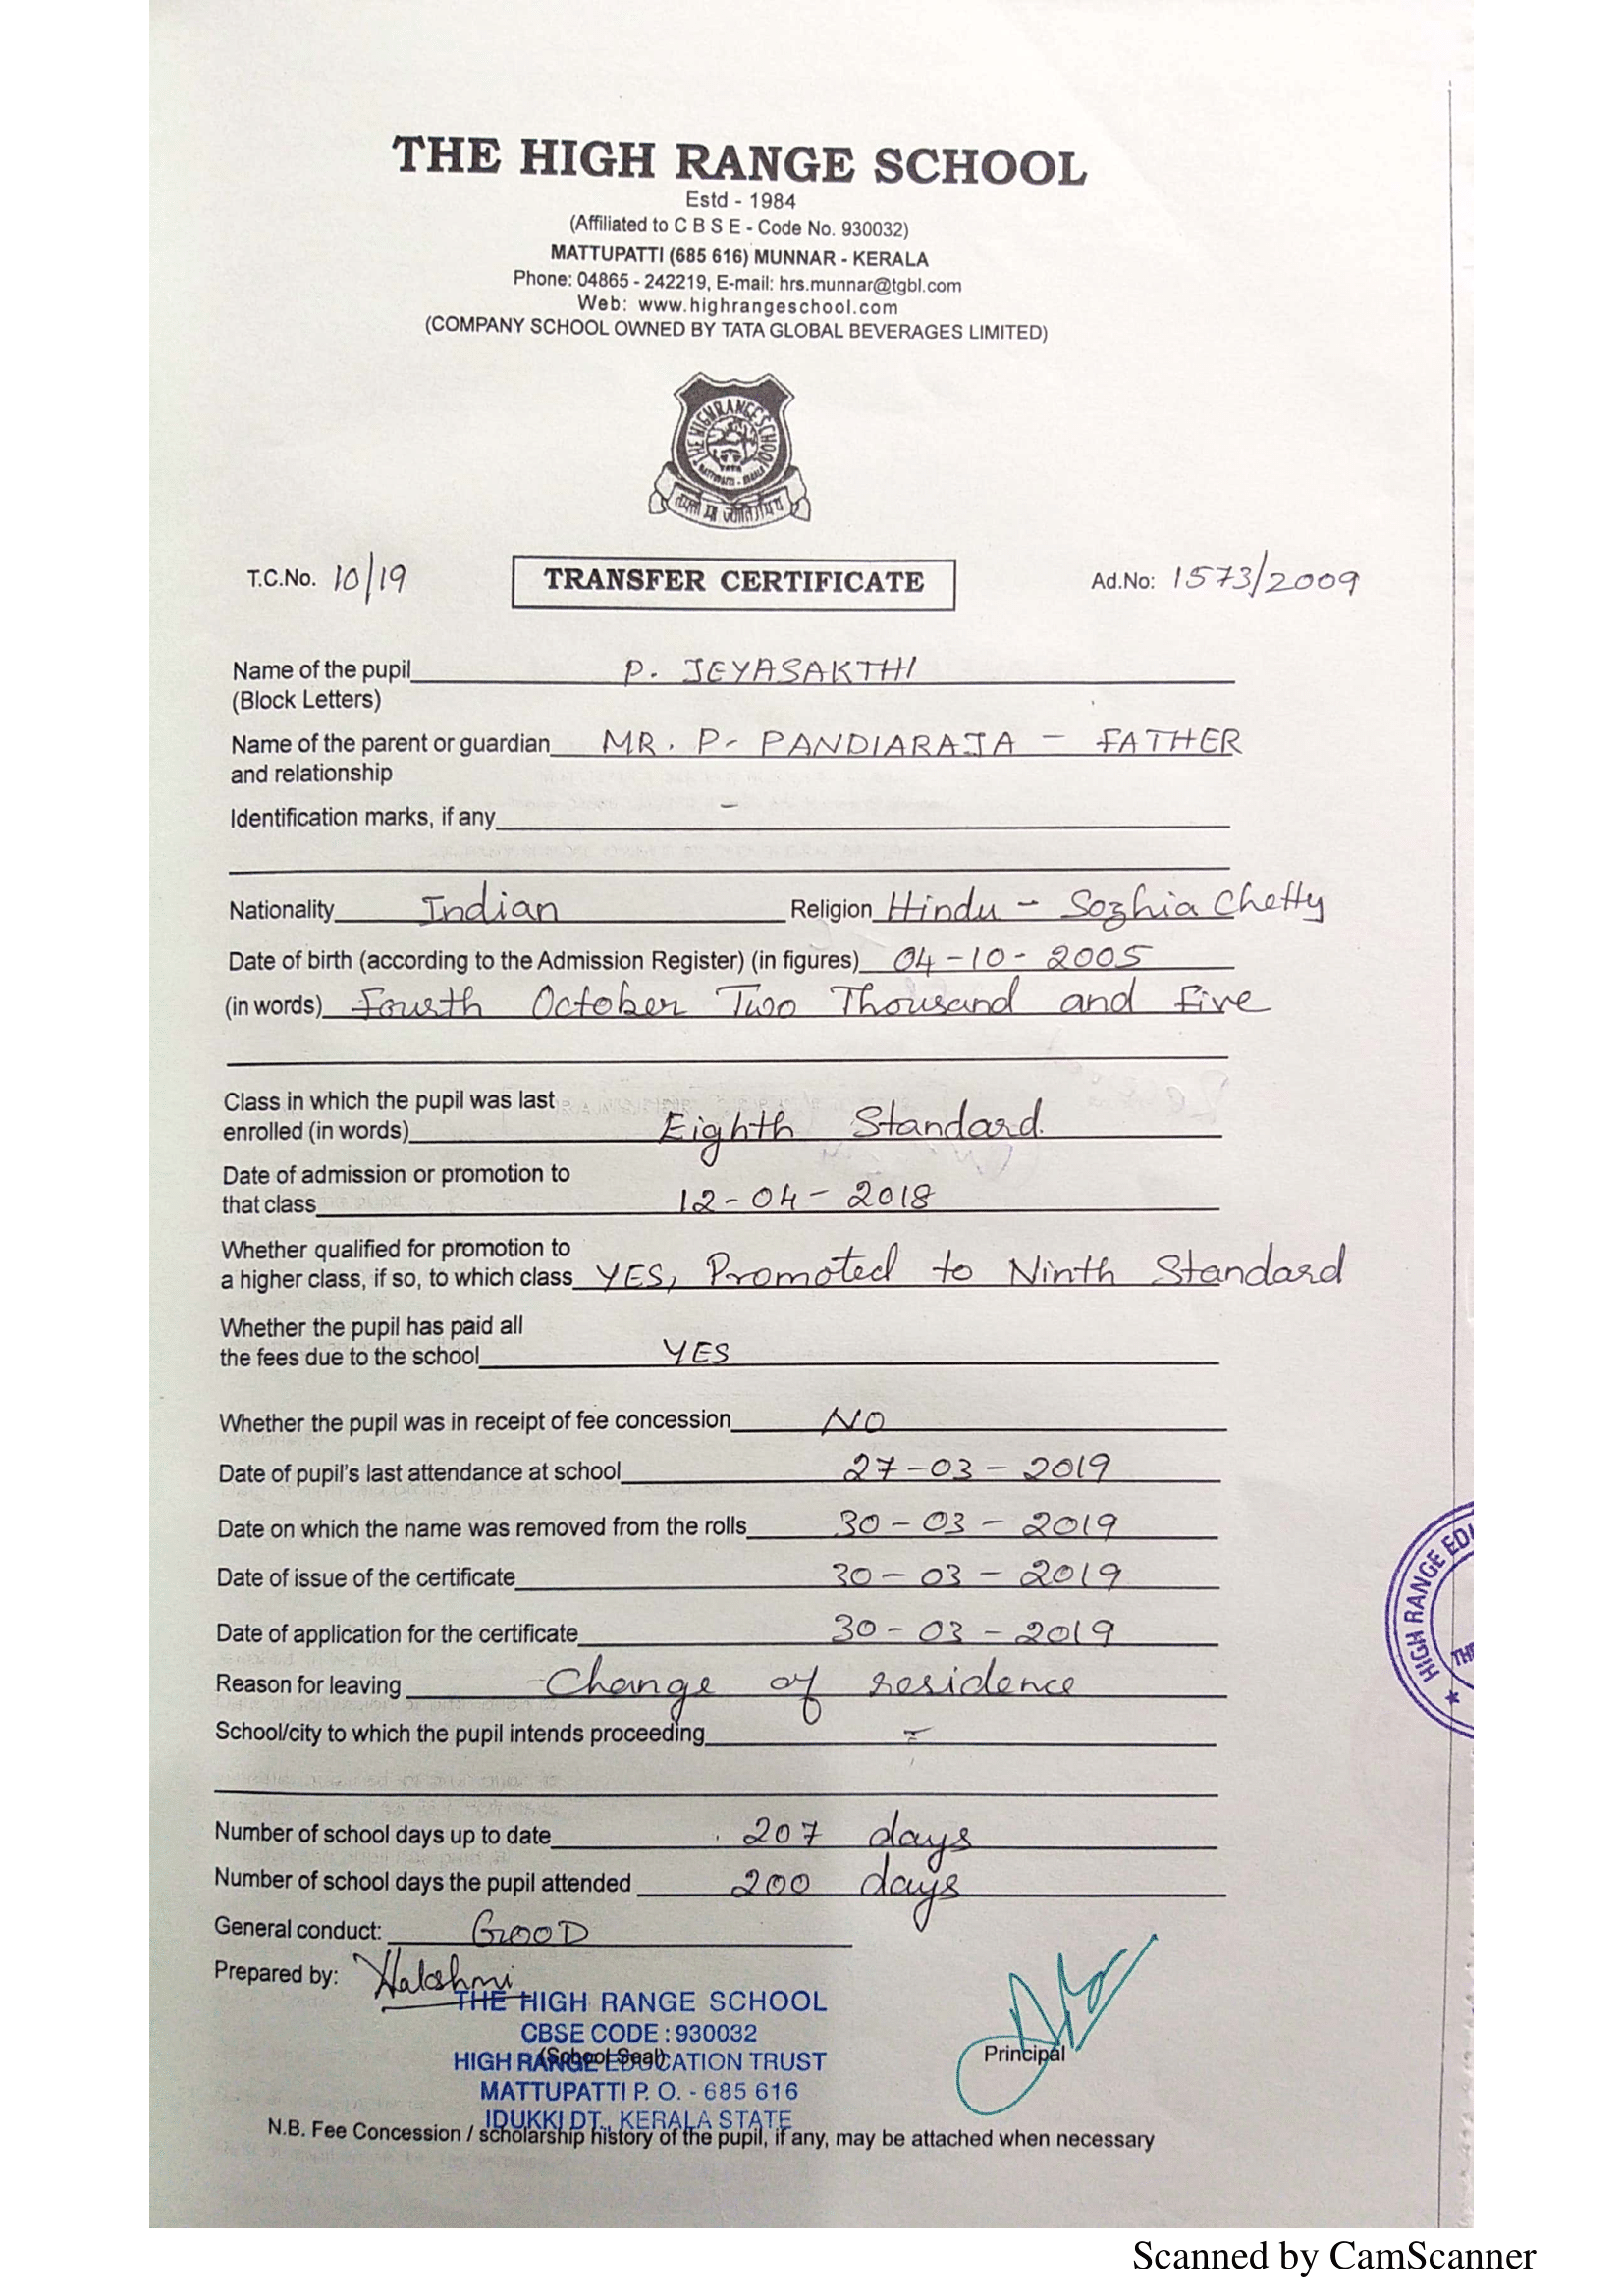 THE HIGH RANGE SCHOOL
Estd - 1984
(Affiliated to C B S E - Code No. 930032)
MATTUPATTI (685 616) MUNNAR - KERALA
Phone: 04865 - 242219, E-mail: hrs.munnar@tgbl.com
Web: www.highrangeschool.com
(COMPANY SCHOOL OWNED BY TATA GLOBAL BEVERAGES LIMITED)
THE HIGH RANGE SCHOOL
T.C.No. 10/19 TRANSFER CERTIFICATE Ad.No: 1573/2009
Name of the pupil P. JEYASAKTHI
(Block Letters)
Name of the parent or guardian MR. P. PANDIARAJA - FATHER
and relationship
Identification marks, if any -
Nationality Indian Religion Hindu - Sozhia Chetty
Date of birth (according to the Admission Register) (in figures) 04-10-2005
(in words) Fourth October Two Thousand and Five
Class in which the pupil was last
enrolled (in words) Eighth Standard.
Date of admission or promotion to
that class 12-04-2018
Whether qualified for promotion to
a higher class, if so, to which class YES, Promoted to Ninth Standard
Whether the pupil has paid all
the fees due to the school YES
Whether the pupil was in receipt of fee concession NO
Date of pupil's last attendance at school 27-03-2019
Date on which the name was removed from the rolls 30-03-2019
Date of issue of the certificate 30-03-2019
Date of application for the certificate 30-03-2019
HIGH RANGE EDU
THE
Reason for leaving Change of residence
School/city to which the pupil intends proceeding -
Number of school days up to date 207 days
Number of school days the pupil attended 200 days
General conduct: GOOD
Prepared by:
THE HIGH RANGE SCHOOL
CBSE CODE : 930032
(School Seal)
HIGH RANGE EDUCATION TRUST
Principal
MATTUPATTI P. O. - 685 616
IDUKKI DT., KERALA STATE
N.B. Fee Concession / scholarship history of the pupil, if any, may be attached when necessary
Scanned by CamScanner